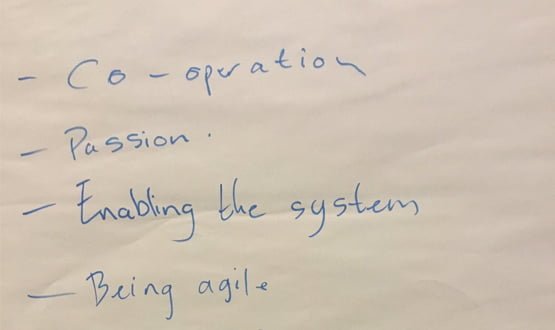 - Co-operation
- Passion.
- Enabling the system
- Being agile